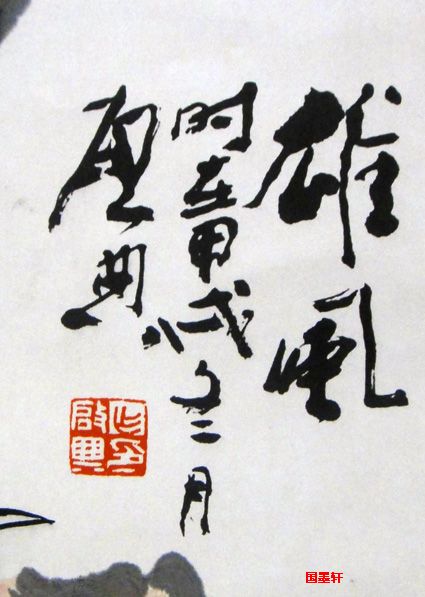 雄風
时在甲戌二月
启典
国墨轩